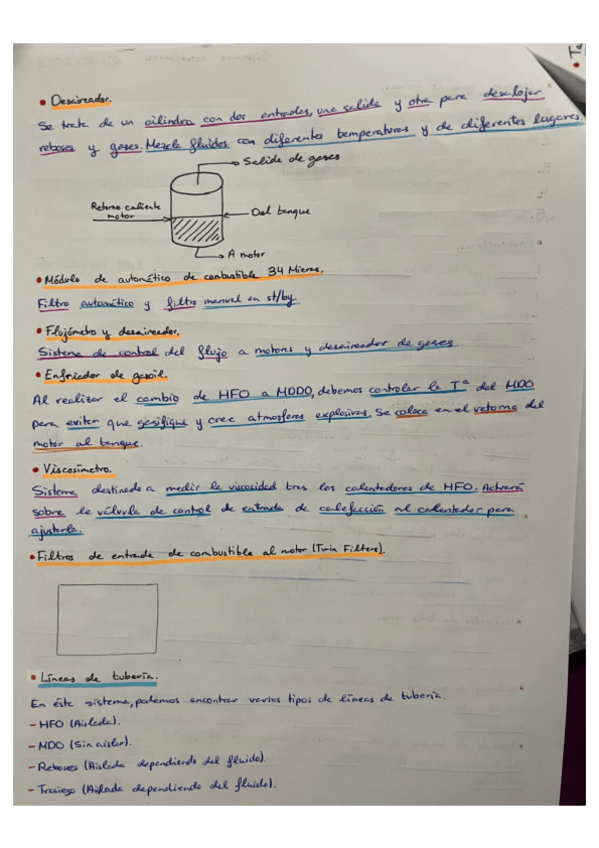 • Desaireador.
Se trata de un cilindro con dos entradas, una salida y otra para desalojar
reboses y gases. Mezcla fluidos con diferentes temperaturas y de diferentes lugares.
Salida de gases
Retorno caliente
motor
Del tanque
A motor
• Módulo de automático de combustible 34 Micras.
Filtro automático y filtro manual en st/by.
• Flujómetro y desaireador.
Sistema de control del flujo a motores y desaireador de gases.
• Enfriador de gasoil.
Al realizar el cambio de HFO a MDDO, debemos controlar la Tª del MDO
para evitar que gasifique y cree atmosferas explosivas. Se coloca en el retorno del
motor al tanque.
• Viscosímetro.
Sistema destinado a medir la viscosidad tras los calentadores de HFO. Actuará
sobre la válvula de control de entrada de calefacción al calentador para
ajustarla.
• Filtros de entrada de combustible al motor (Twin Filters).
• Líneas de tubería.
En éste sistema, podemos encontrar varios tipos de líneas de tubería.
- HFO (Aislada).
- MDO (Sin aislar).
- Reboses (Aislada dependiendo del fluido).
- Trasiego (Aislada dependiendo del fluido).